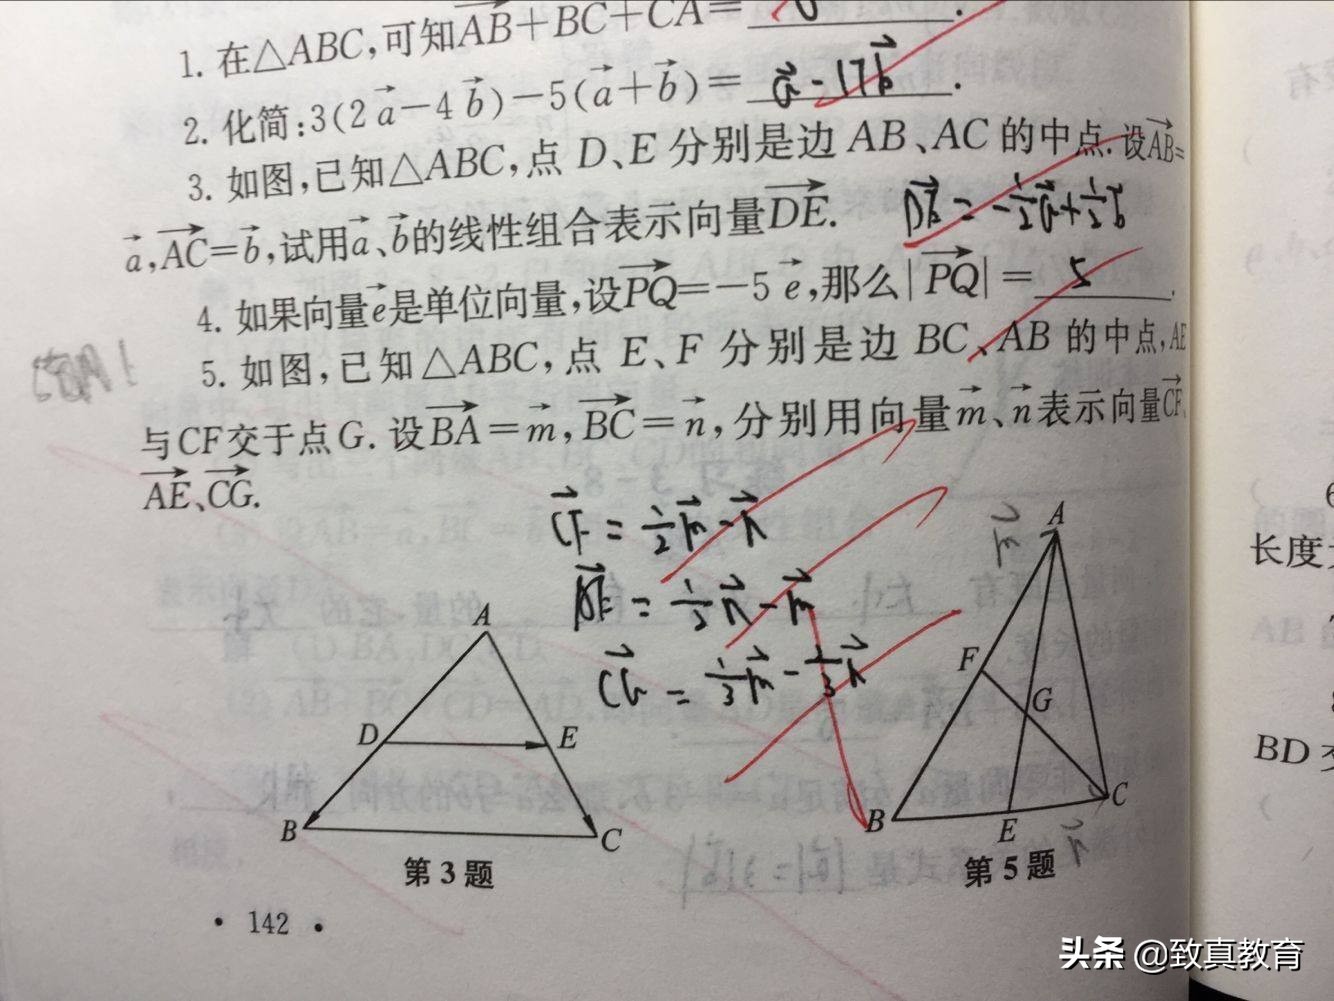 1. 在△ABC,可知AB+BC+CA=
2. 化简:3(2a-4b)-5(a+b)= a-17b.
3. 如图,已知△ABC,点 D、E 分别是边 AB、AC 的中点.设AB=
a,AC=b,试用a、b的线性组合表示向量DE. DE = -1/2a+1/2b
4. 如果向量e是单位向量,设PQ=-5e,那么|PQ|= 5.
5. 如图,已知△ABC,点 E、F 分别是边 BC、AB 的中点,AE
与CF交于点G. 设BA=m,BC=n,分别用向量m、n表示向量CF、
AE、CG.
CF = 1/2m-n
AE = 1/2n-m
CG = 1/3m-
A
D
E
B
C
第3题
A
F
G
B
E
C
第5题
· 142 ·
长度
AB
BD
头条 @致真教育